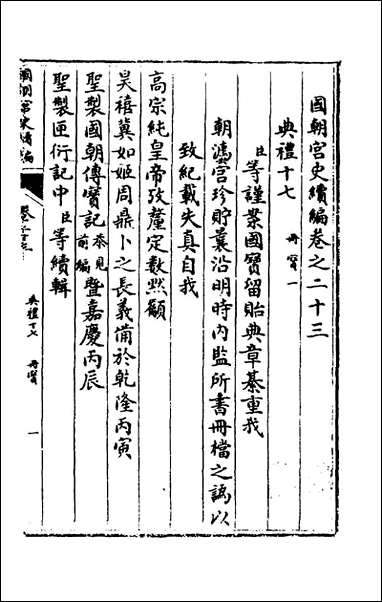 國朝宮史續編卷之二十三
典禮十七 冊寶一
臣等謹案國寶留貽典章綦重我
朝瀛宮珍貯曩沿明時內監所書冊檔之譌以
致紀載失真自我
高宗純皇帝攷釐定數黙籲
昊禧冀如姬周鼎卜之長義備於乾隆丙寅
聖製國朝傳寶記恭見前編曁嘉慶丙辰
聖製匣衍記中臣等續輯
國朝宮史續編
典禮十七 冊寶 一